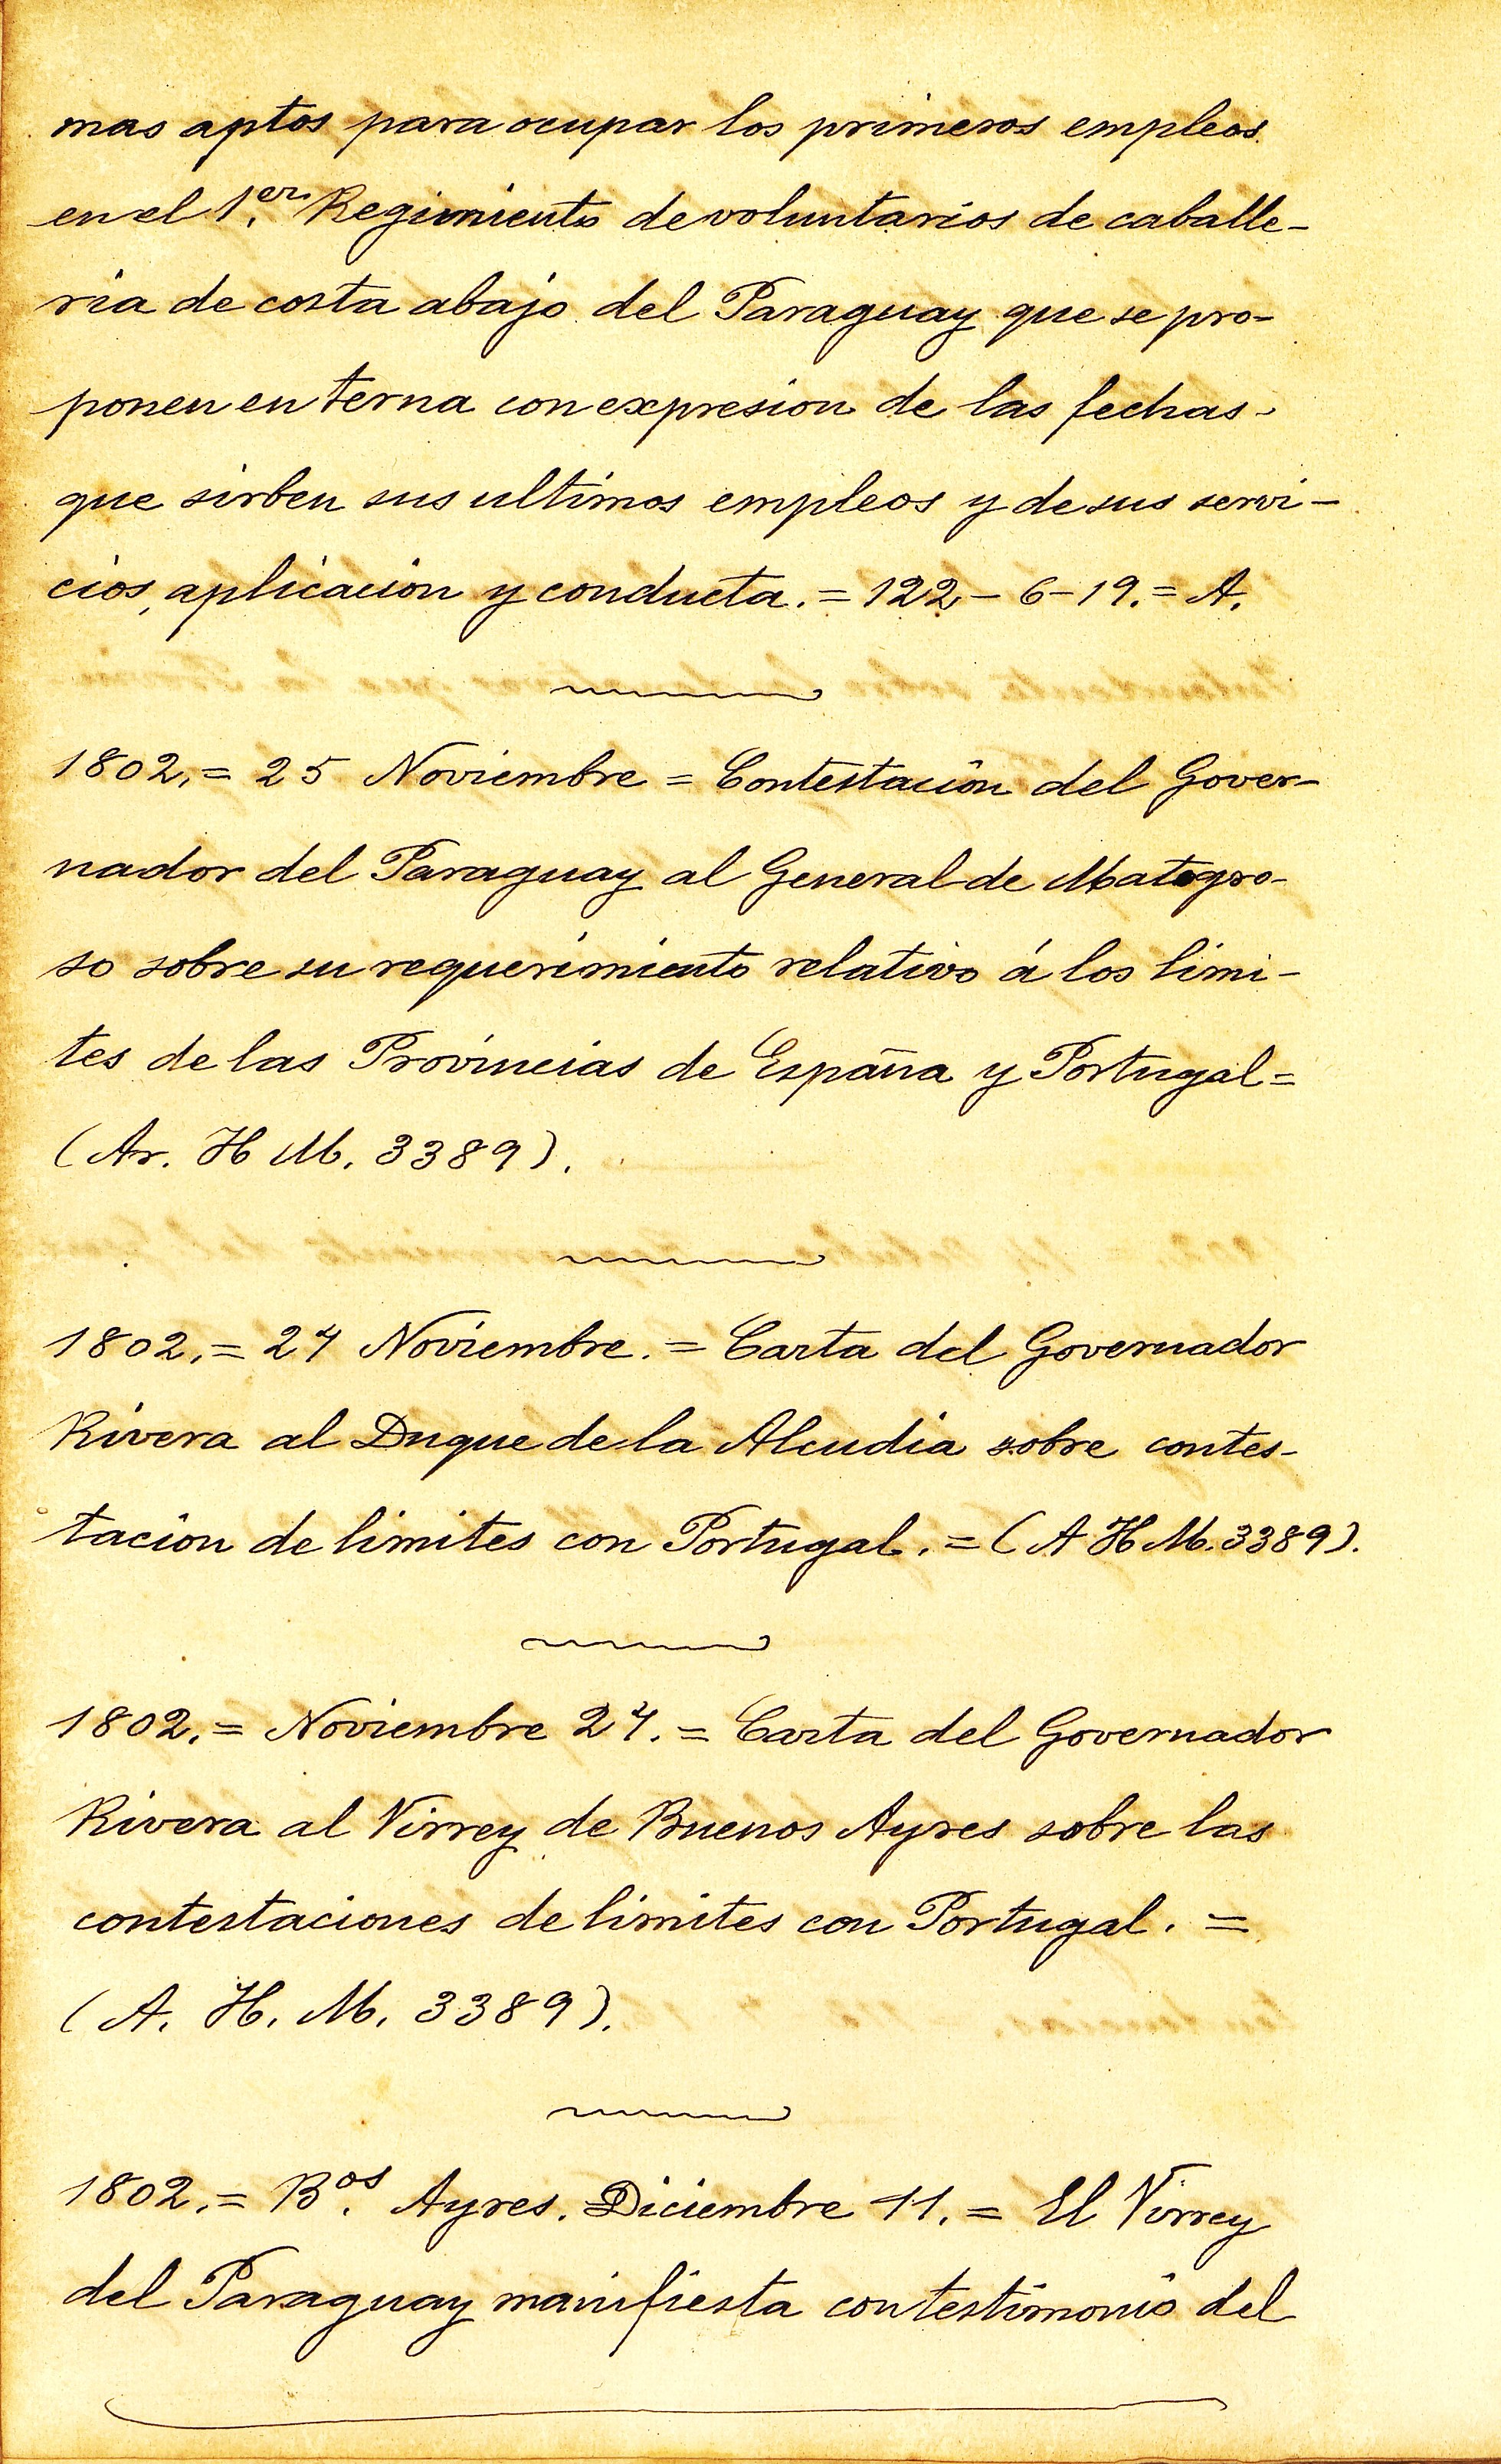 mas aptos para ocupar los primeros empleos
en el 1.er Regimiento de voluntarios de caballe-
ria de costa abajo del Paraguay que se pro-
ponen en terna con expresion de las fechas
que sirben sus ultimos empleos y de sus servi-
cios, aplicacion y conducta. = 122 - 6 - 19. = A.
1802. = 25 Noviembre = Contestacion del Gover-
nador del Paraguay al General de Matogro-
so sobre su requerimiento relativo á los limi-
tes de las Provincias de España y Portugal =
(Ar. H M. 3389).
1802. = 27 Noviembre. = Carta del Governador
Rivera al Duque de la Alcudia sobre contes-
tacion de limites con Portugal. = (A H M. 3389).
1802. = Noviembre 27. = Carta del Governador
Rivera al Virrey de Buenos Ayres sobre las
contestaciones de limites con Portugal. =
(A. H. M. 3389).
1802. = B.os Ayres. Diciembre 11. = El Virrey
del Paraguay manifiesta con testimonio del